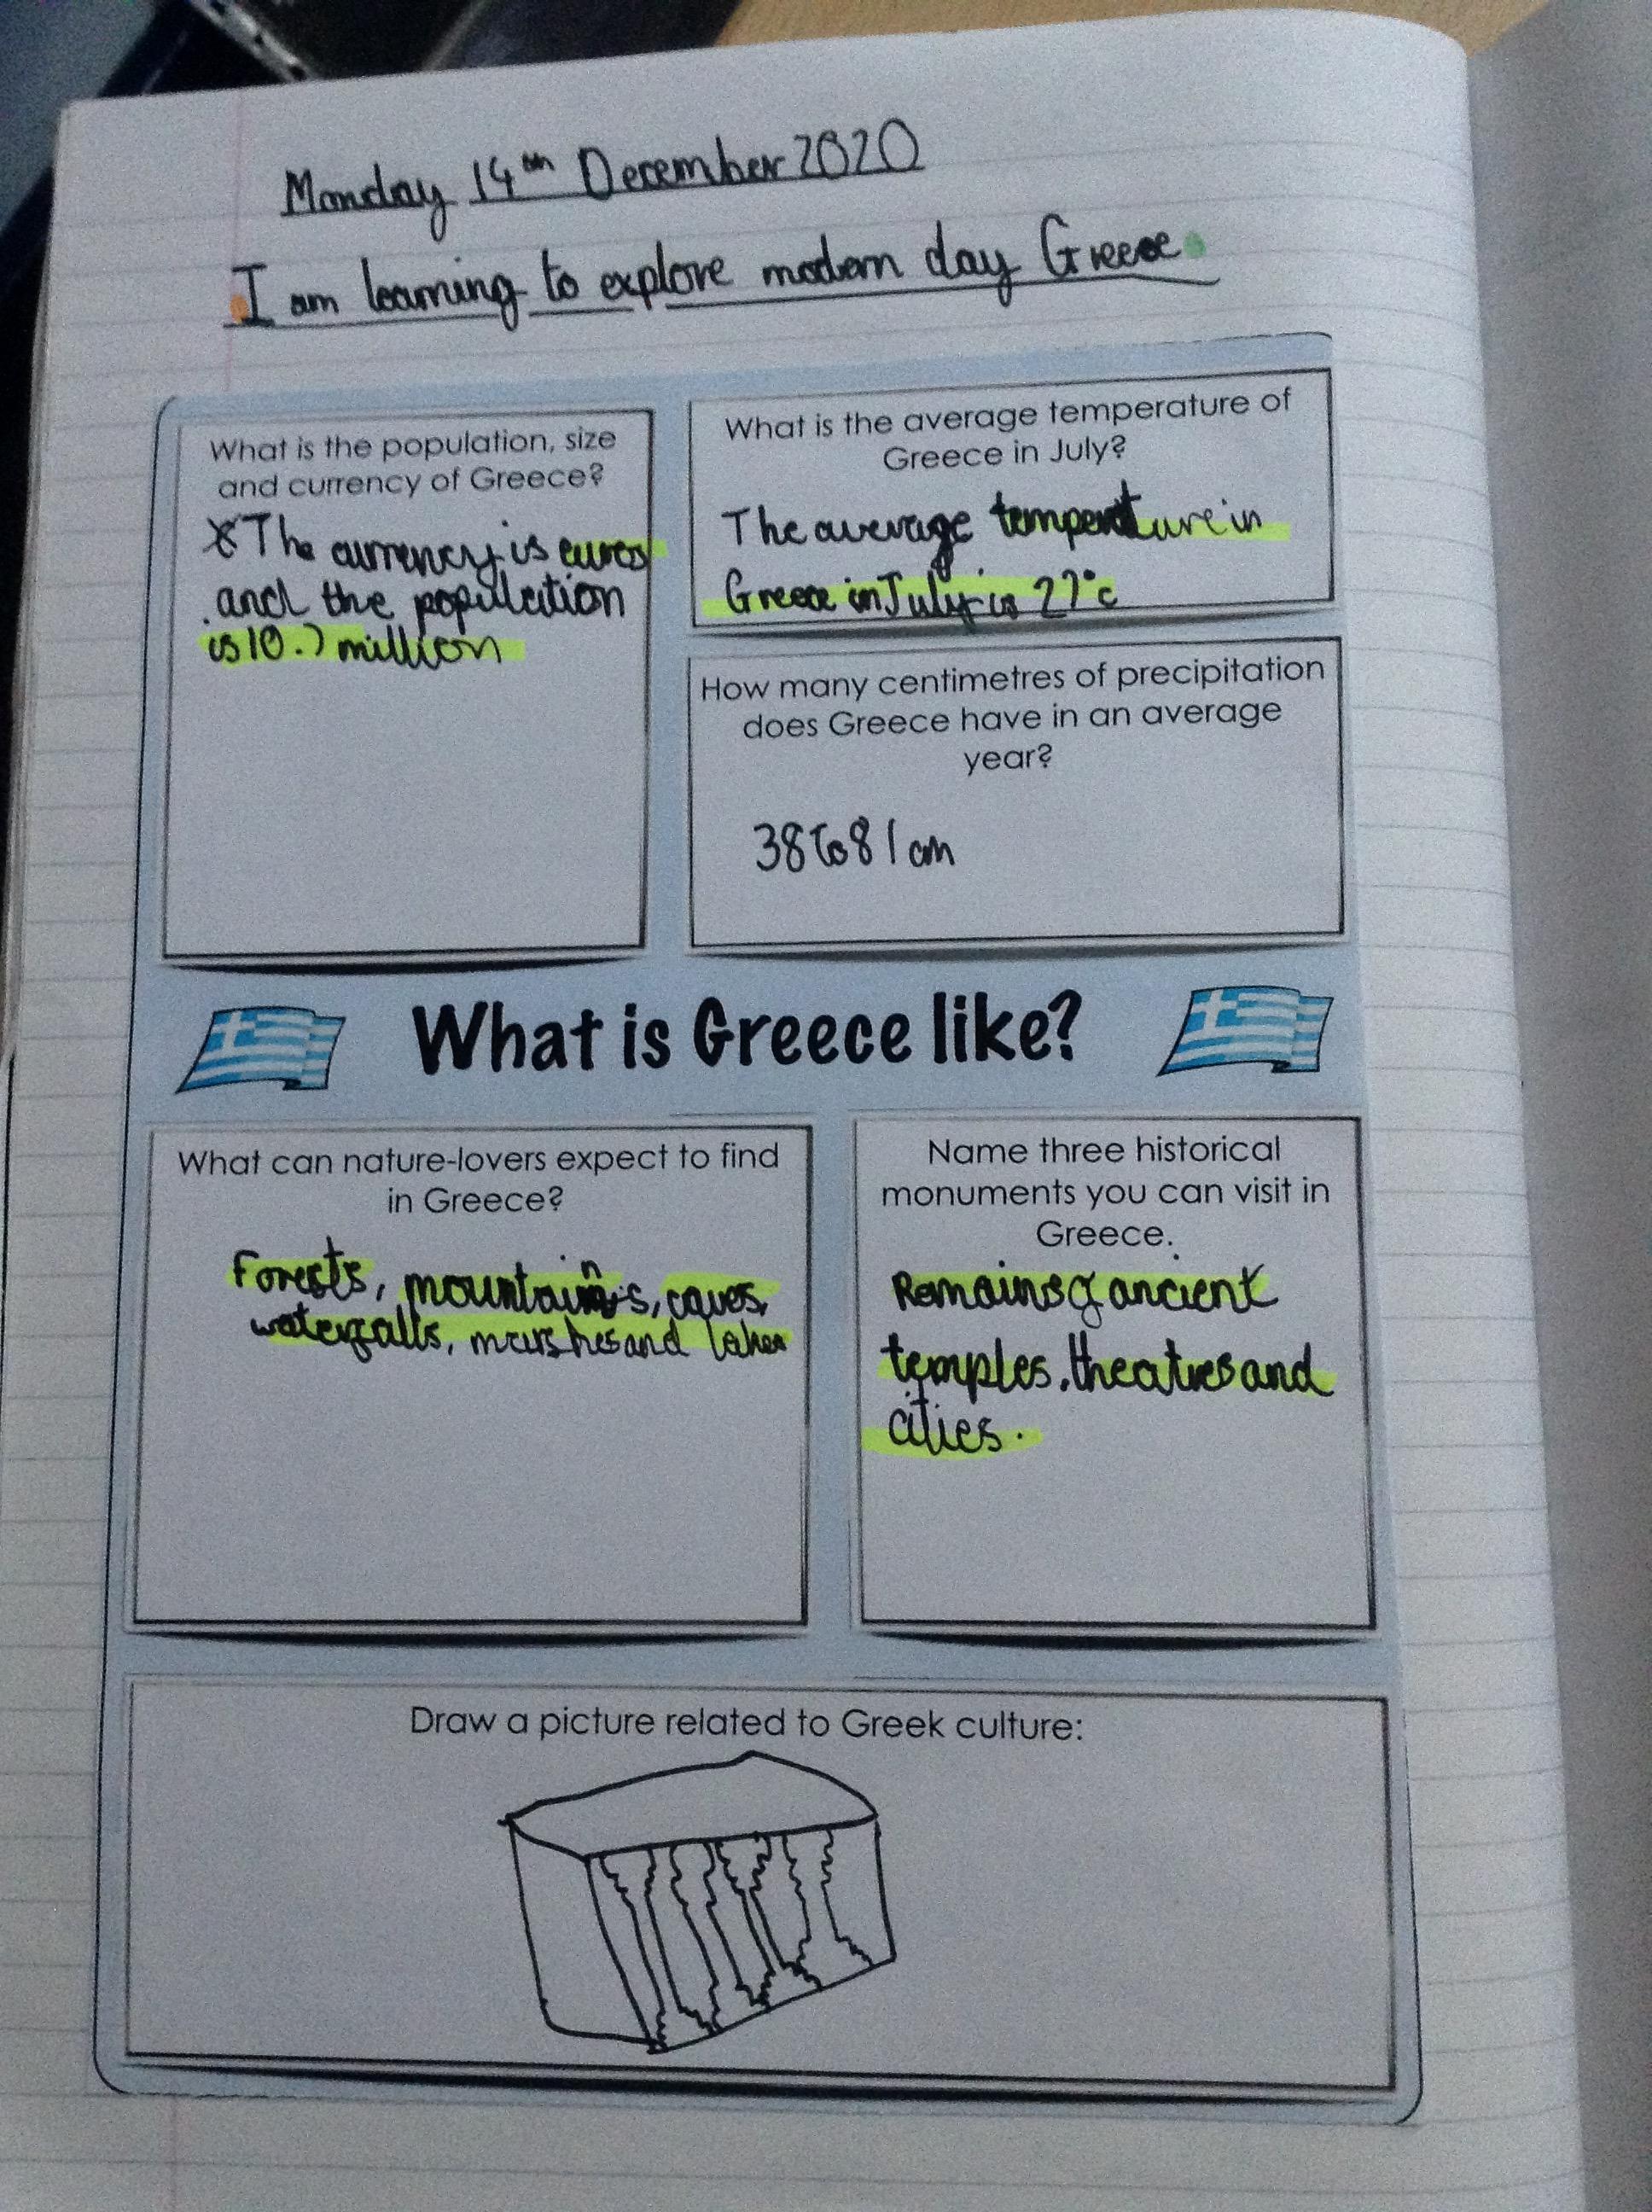 Monday 14th December 2020
I am learning to explore modern day Greece.
What is the population, size
and currency of Greece?
The currency is euros
and the population
is 10.7 million
What is the average temperature of
Greece in July?
The average temperature in
Greece in July is 27°c
How many centimetres of precipitation
does Greece have in an average
year?
38 to 81 cm
What is Greece like?
What can nature-lovers expect to find
in Greece?
Forests, mountains, caves,
waterfalls, marshes and lakes
Name three historical
monuments you can visit in
Greece.
Remains of ancient
temples, theatres and
cities.
Draw a picture related to Greek culture: